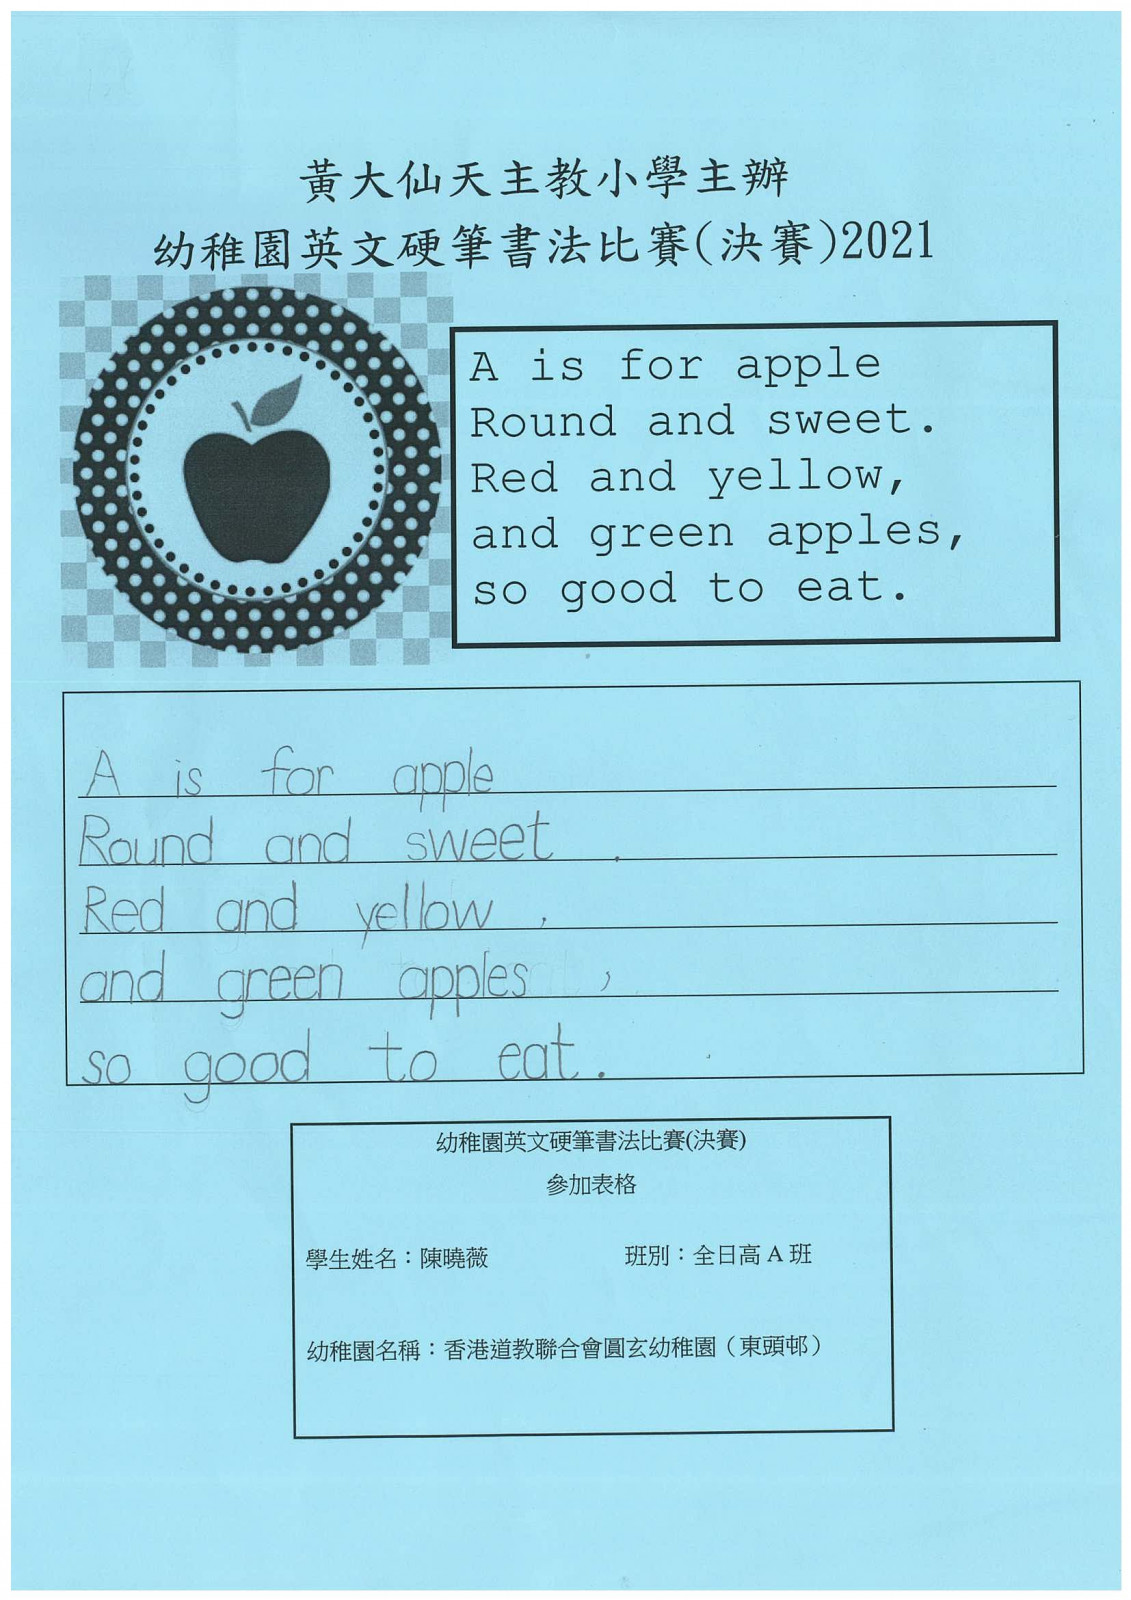 黃大仙天主教小學主辦
幼稚園英文硬筆書法比賽(決賽)2021
A is for apple
Round and sweet.
Red and yellow,
and green apples,
so good to eat.
A is for apple
Round and sweet .
Red and yellow ,
and green apples ,
so good to eat .
幼稚園英文硬筆書法比賽(決賽)
參加表格
學生姓名：陳曉薇 班別：全日高 A 班
幼稚園名稱：香港道教聯合會圓玄幼稚園（東頭邨）